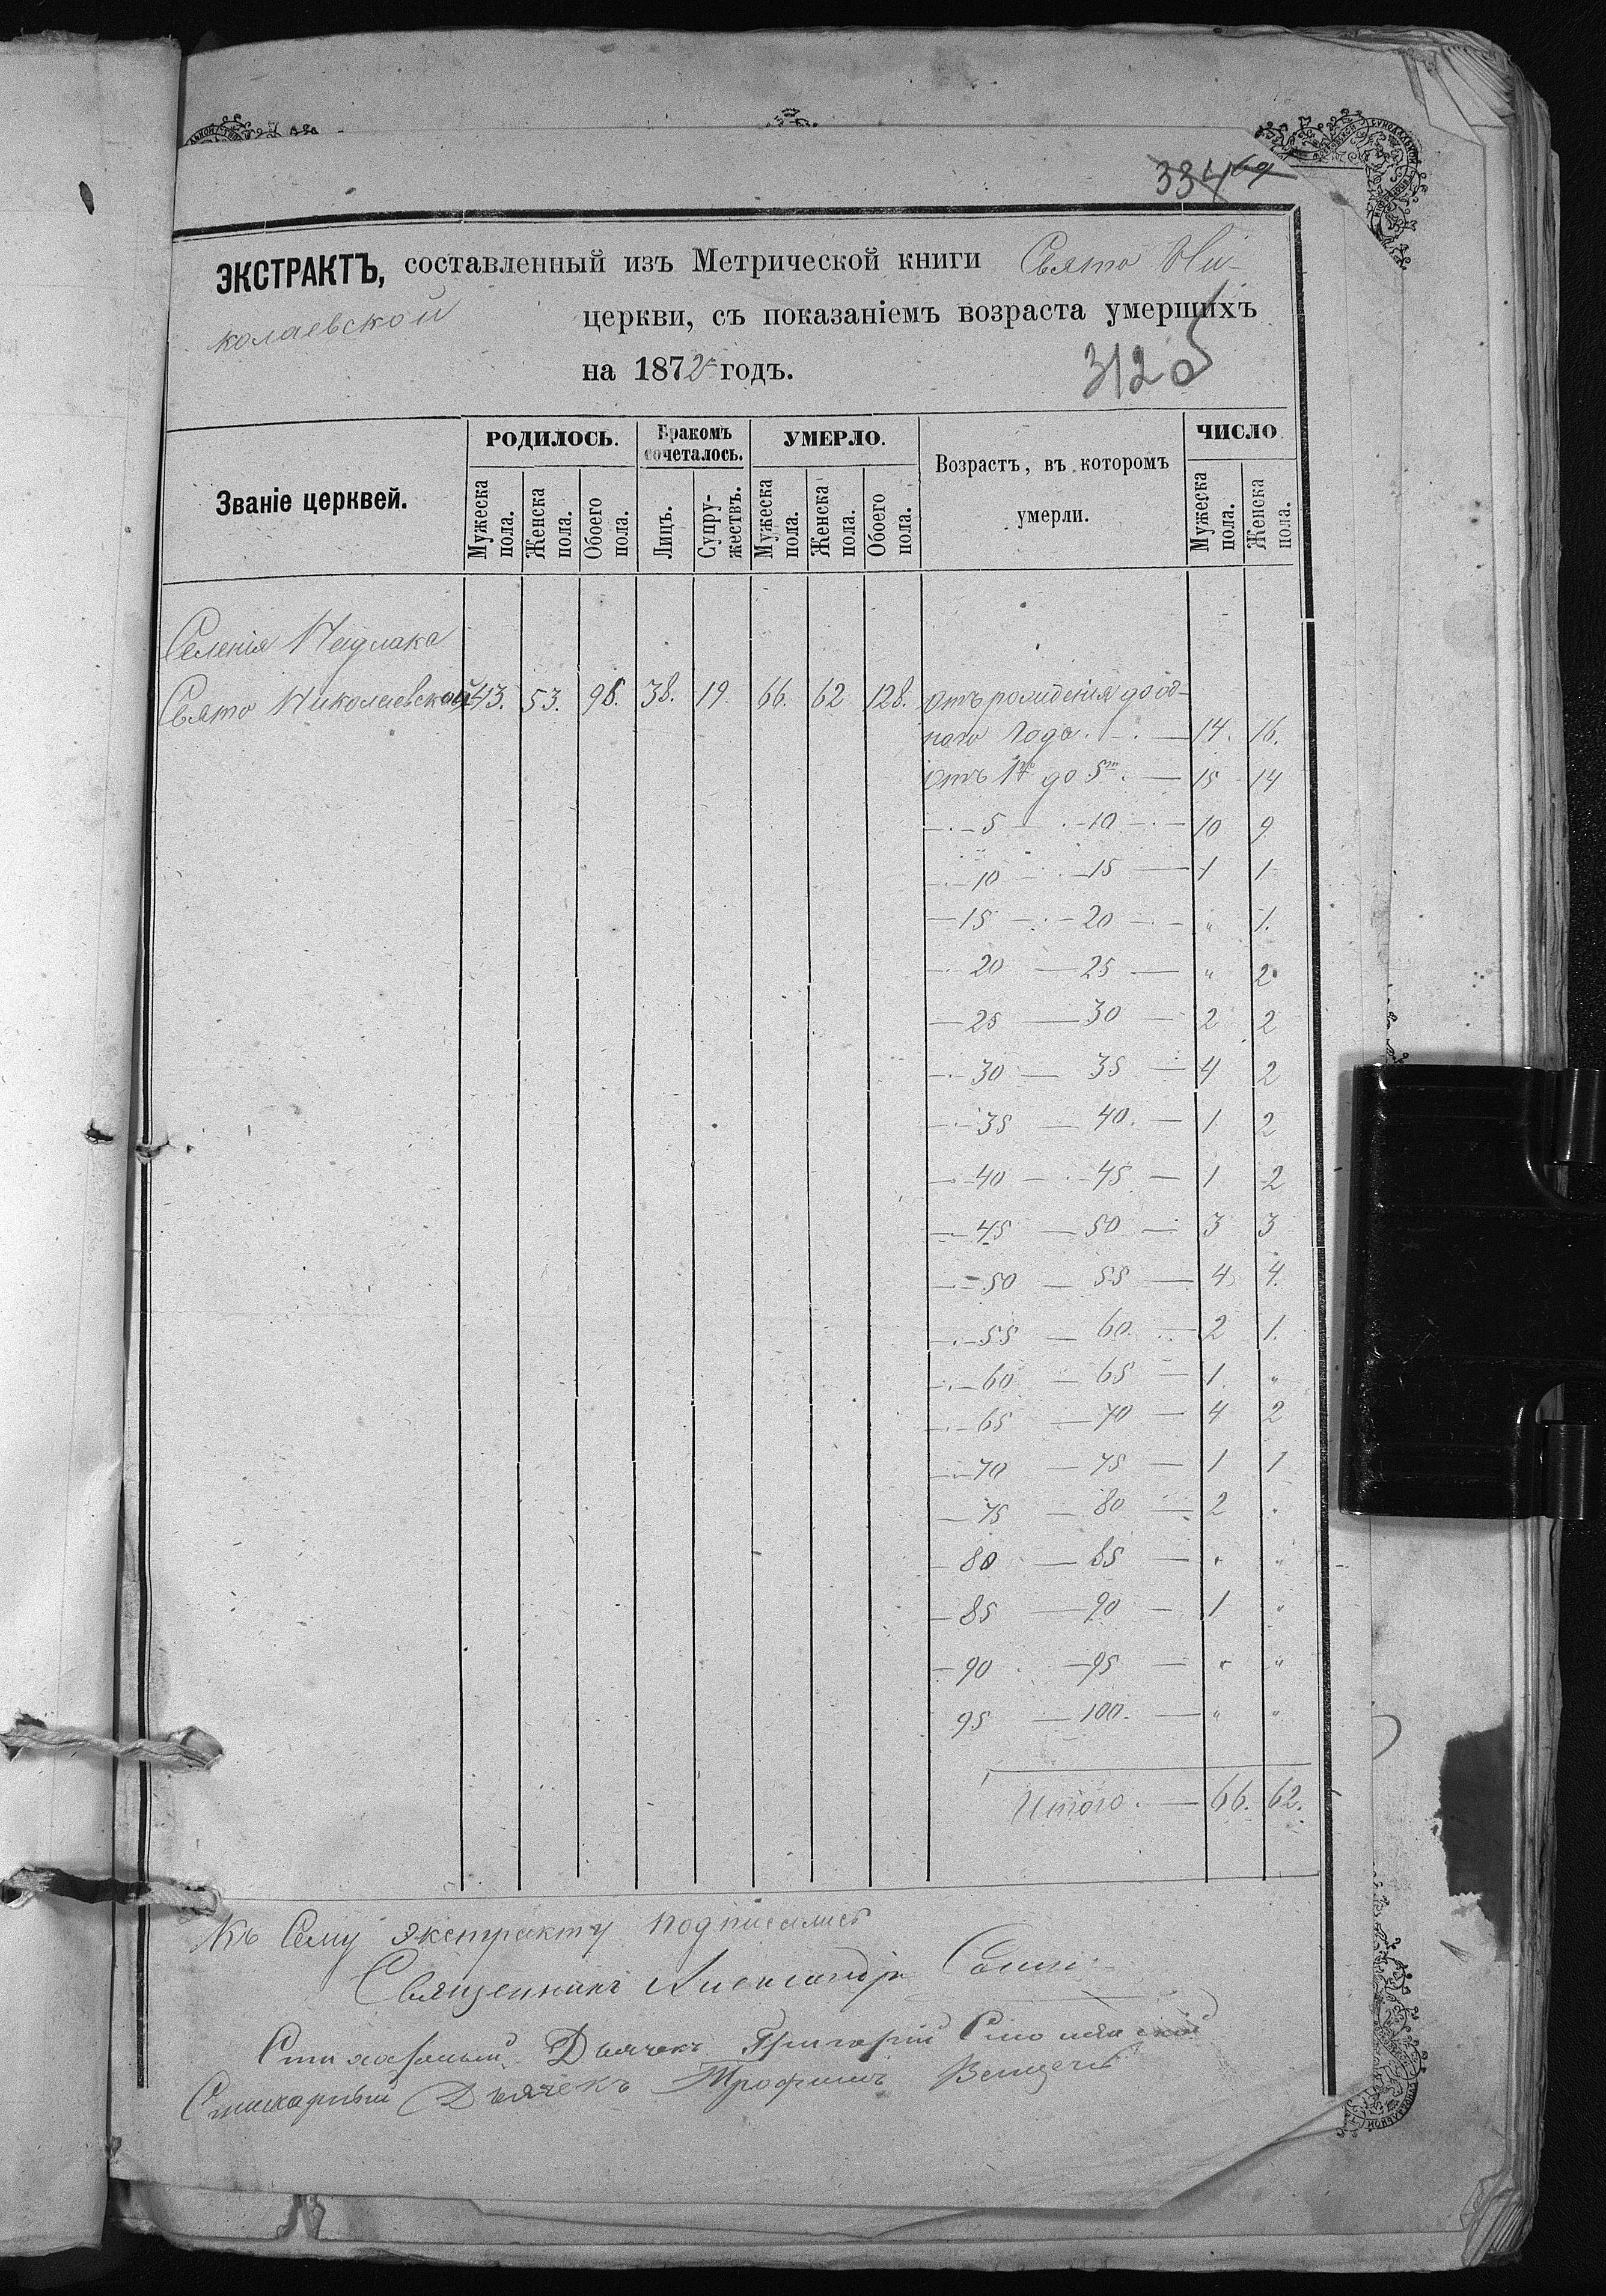 334
ЭКСТРАКТЪ, составленный изъ Метрической книги Свято Ни-
колаевской церкви, съ показаніемъ возраста умершихъ
на 1872 годъ.
312 об
Званіе церквей.
РОДИЛОСЬ.
Мужеска пола.
Женска пола.
Обоего пола.
Бракомъ сочеталось.
Лицъ.
Супружествъ.
УМЕРЛО.
Мужеска пола.
Женска пола.
Обоего пола.
Возрастъ, въ которомъ умерли.
ЧИСЛО
Мужеска пола.
Женска пола.
Селенія Надлака
Свято Николаевской 43. 53. 96. 38. 19. 66. 62 128. отъ рожденія до од-
ного Года. — 14. 16.
отъ 1го до 5ти. — 15 14
— 5 — 10 — 10 9
— 10 — 15 — 1 1
— 15 — 20 — „ 1.
— 20 — 25 — „ 2
— 25 — 30 — 2 2
— 30 — 35 — 4 2
— 35 — 40. — 1 2
— 40 — 45 — 1 2
— 45 — 50 — 3 3
— 50 — 55 — 4 4.
— 55 — 60 — 2 1.
— 60 — 65 — 1. „
— 65 — 70 — 4 2
— 70 — 75 — 1 1
— 75 — 80 — 2 „
— 80 — 85 — „ „
— 85 — 90 — 1 „
— 90 — 95 — „ „
95 — 100. — „ „
Итого. — 66. 62.
Къ Сему экстракту подписались
Священникъ Александръ
Стихарный Дьячекъ Григорій
Стихарный Дьячекъ Трофимъ